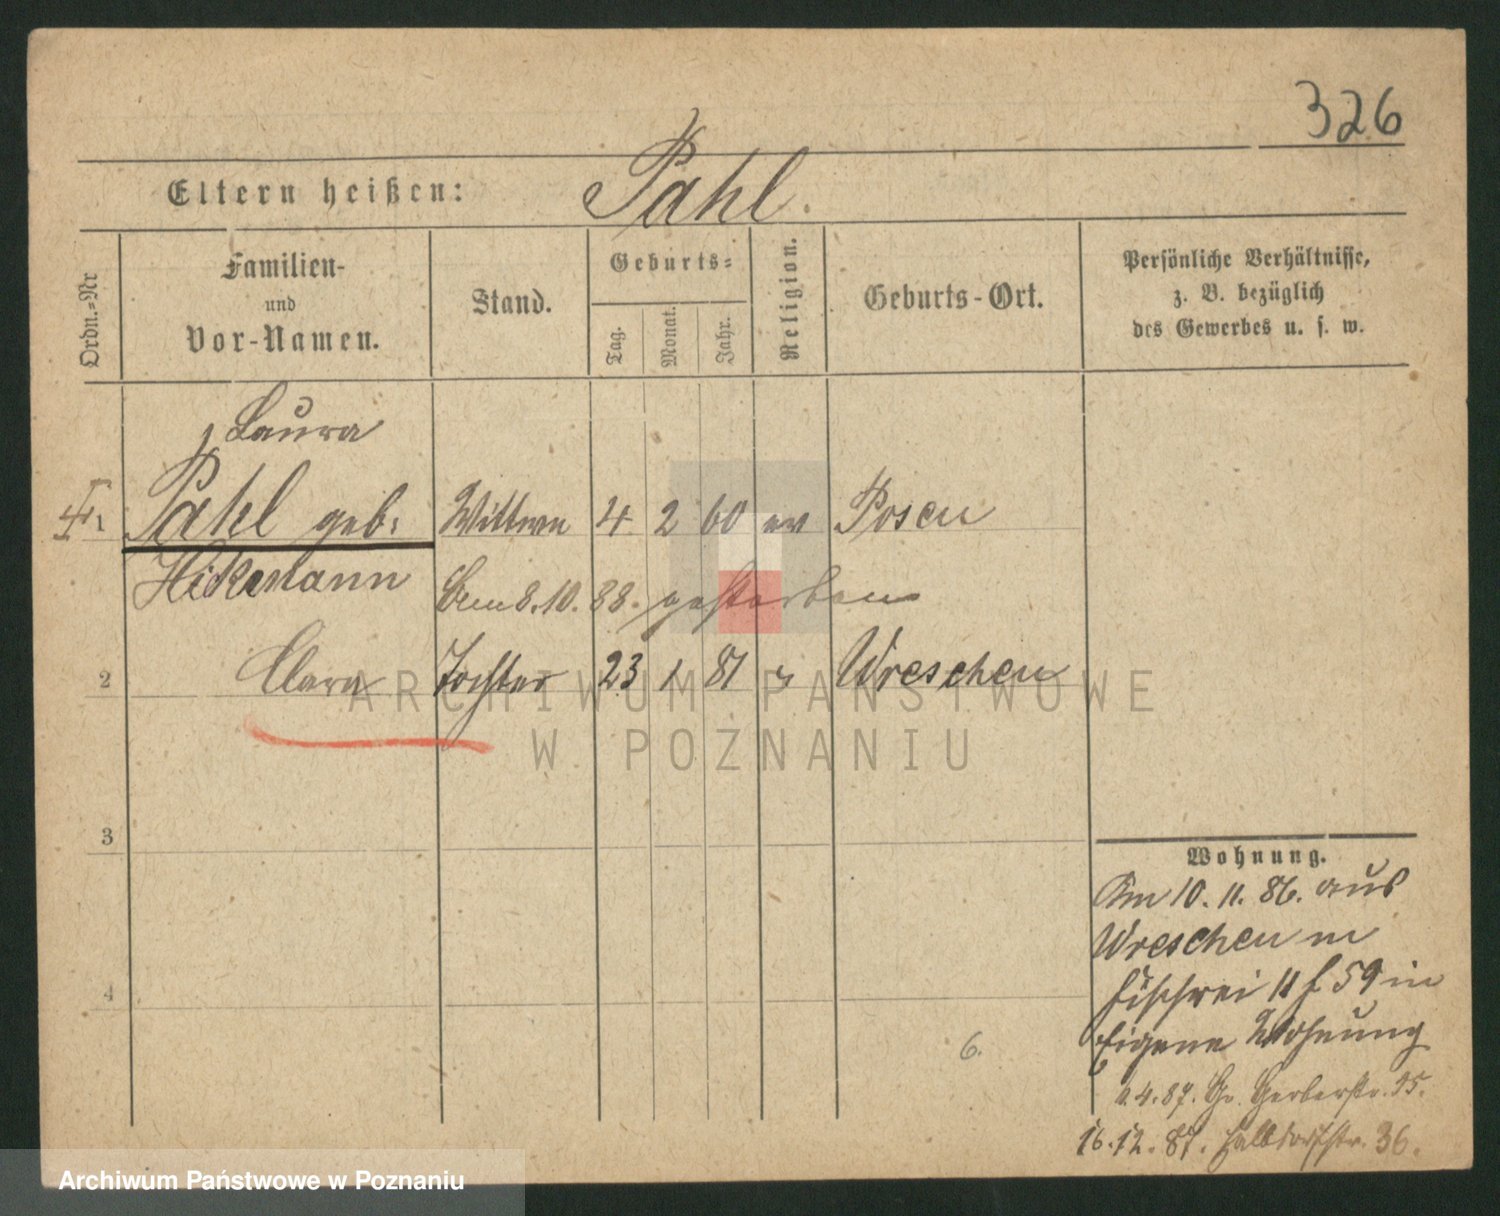 326
Eltern heißen: Pahl.
Ordn.-Nr
Familien-
und
Vor-Namen.
Stand.
Geburts-
Tag.
Monat.
Jahr.
Religion.
Geburts-Ort.
Persönliche Verhältnisse,
z. B. bezüglich
des Gewerbes u. s. w.
Laura
1 Pahl geb. Wittwe 4 2 60 ev Posen
Hickmann
Am 8.10.88. gestorben
2 Clara Tochter 23 1 81 " Wreschen
3
4
6.
Wohnung.
Am 10.11.86. aus
Wreschen in
Fischerei 11 f 59 in
Eigene Wohnung
1.4.87. Gr. Gerberstr. 15.
16.12.87. Halbdorfstr. 36.
ARCHIWUM PAŃSTWOWE
W POZNANIU
Archiwum Państwowe w Poznaniu